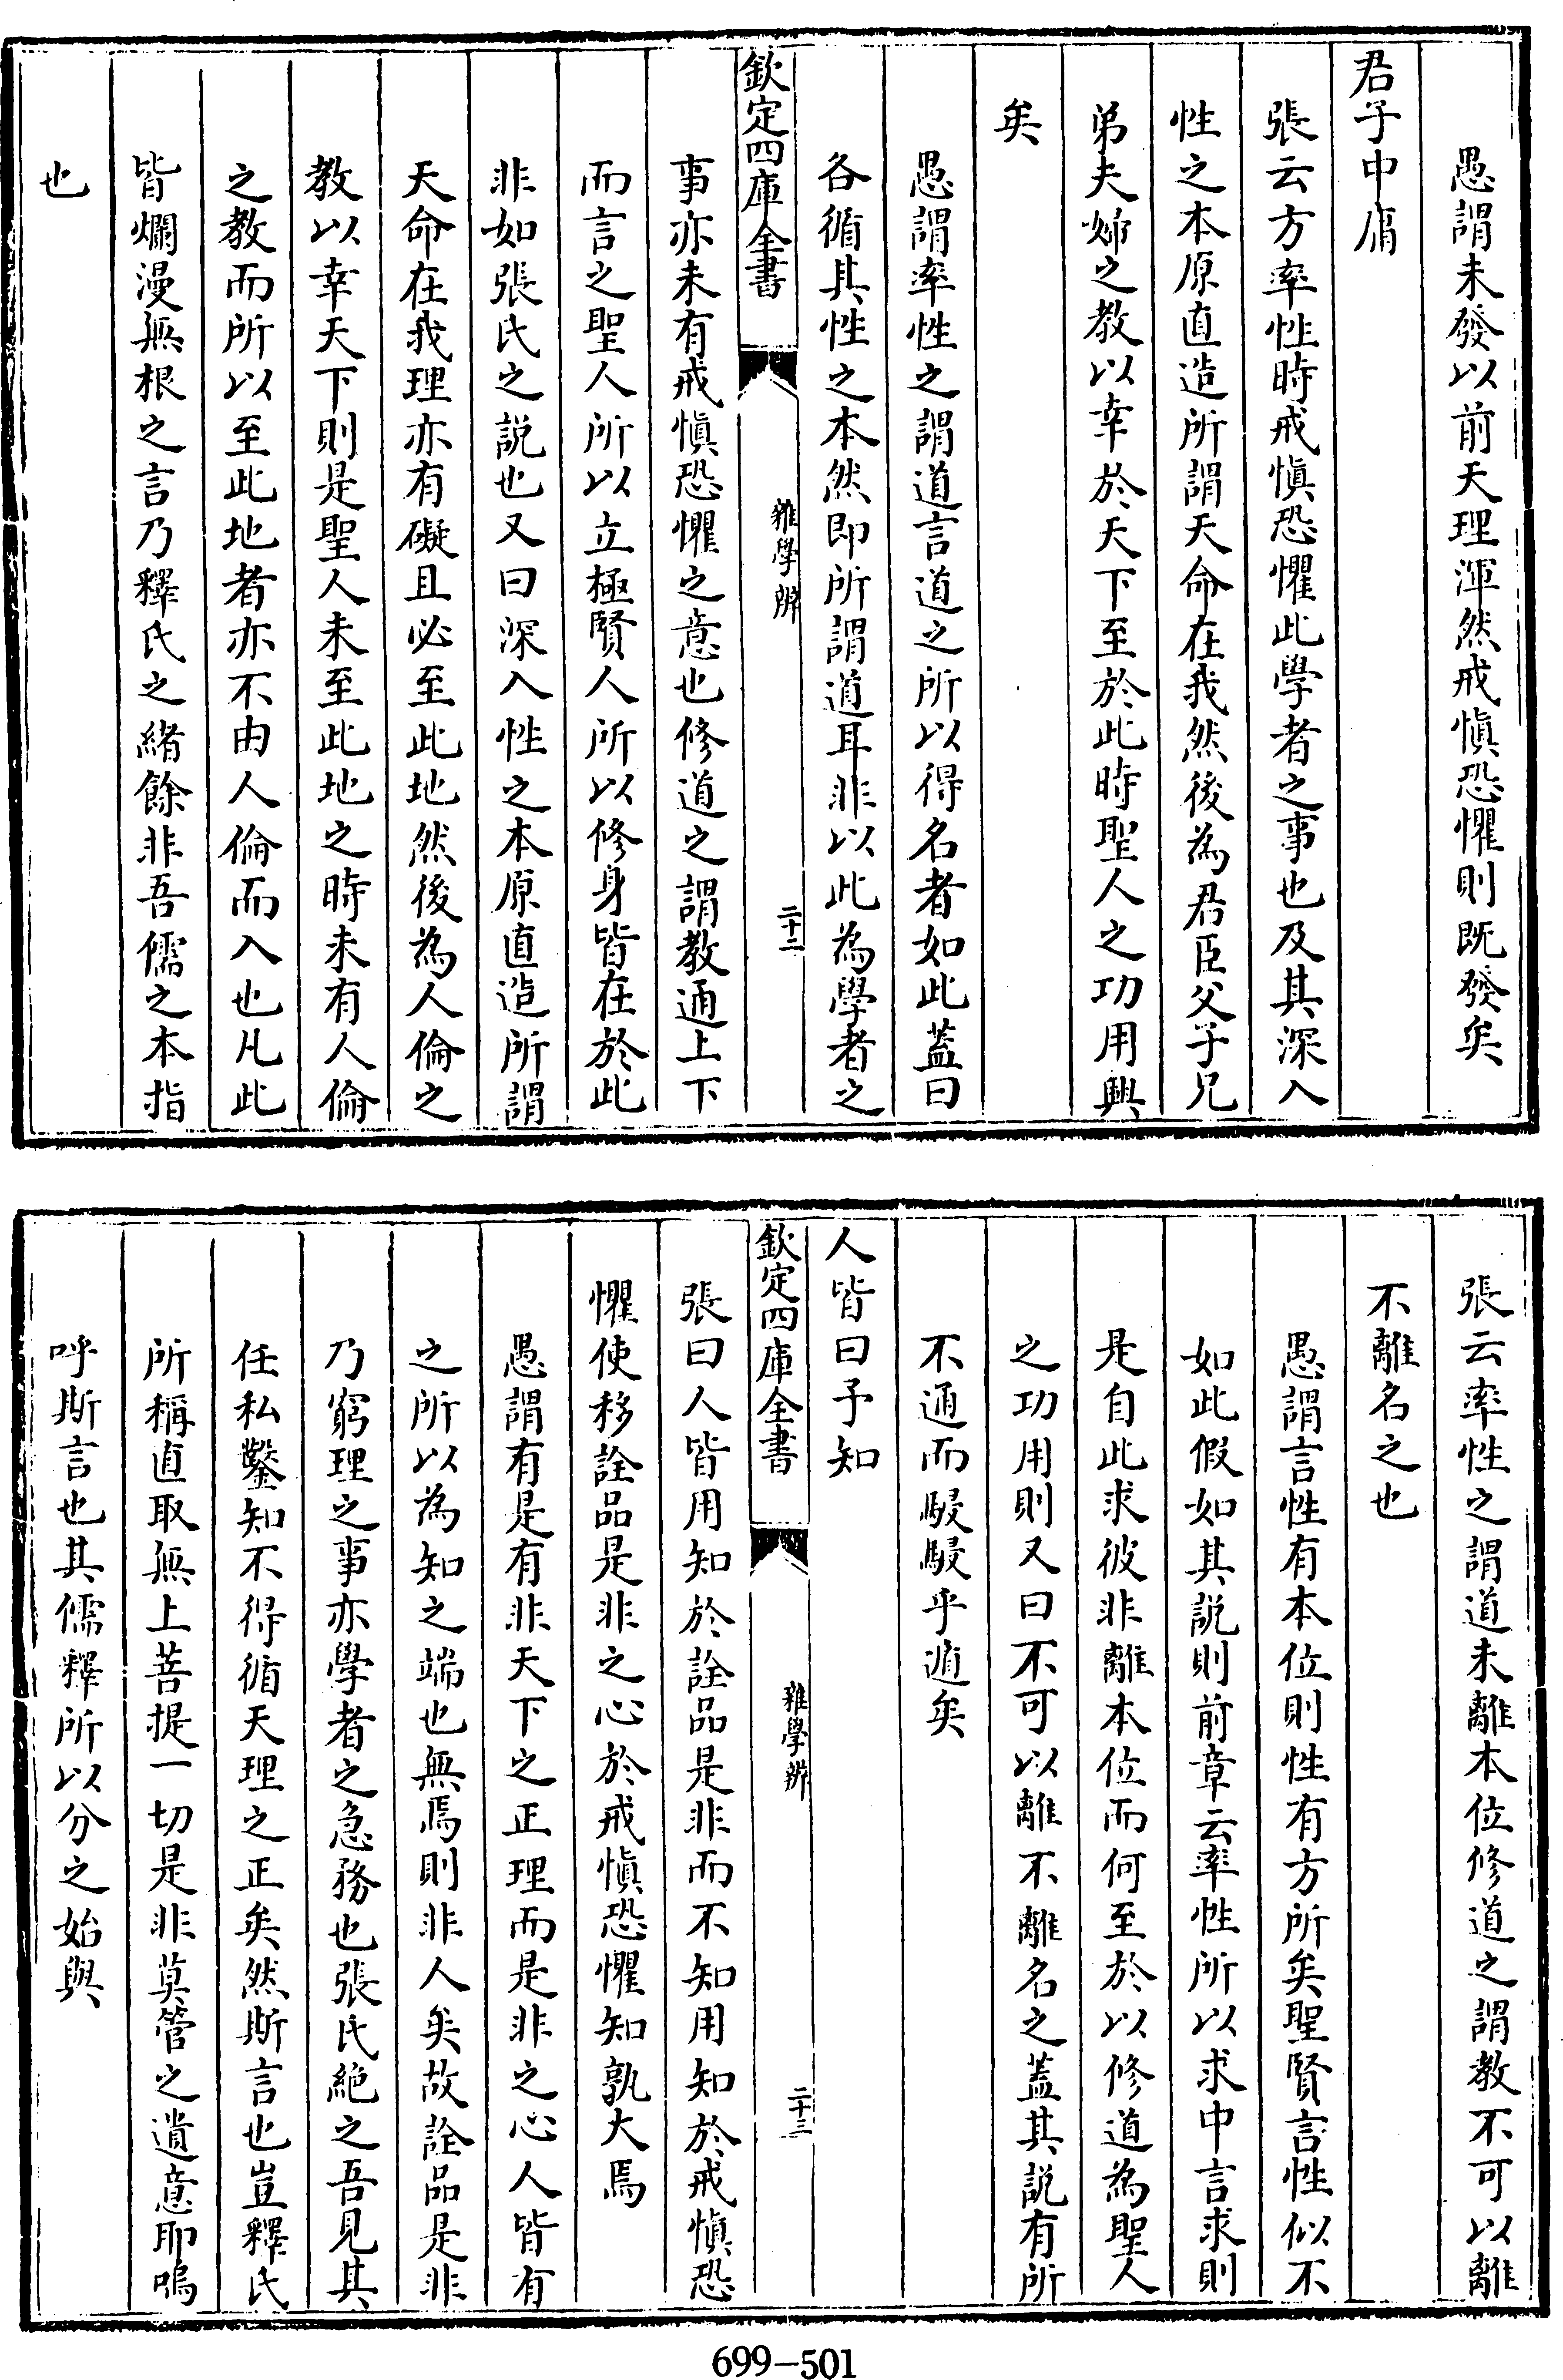 愚謂未發以前天理渾然戒慎恐懼則既發矣
君子中庸
張云方率性時戒慎恐懼此學者之事也及其深入
性之本原直造所謂天命在我然後為君臣父子兄
弟夫婦之教以幸於天下至於此時聖人之功用興
矣
愚謂率性之謂道言道之所以得名者如此蓋曰
各循其性之本然即所謂道耳非以此為學者之
欽定四庫全書
雜學辨
二十二
事亦未有戒慎恐懼之意也修道之謂教通上下
而言之聖人所以立極賢人所以修身皆在於此
非如張氏之說也又曰深入性之本原直造所謂
天命在我理亦有礙且必至此地然後為人倫之
教以幸天下則是聖人未至此地之時未有人倫
之教而所以至此地者亦不由人倫而入也凡此
皆爛漫無根之言乃釋氏之緒餘非吾儒之本指
也
張云率性之謂道未離本位修道之謂教不可以離
不離名之也
愚謂言性有本位則性有方所矣聖賢言性似不
如此假如其說則前章云率性所以求中言求則
是自此求彼非離本位而何至於以修道為聖人
之功用則又曰不可以離不離名之蓋其說有所
不通而駸駸乎遁矣
人皆曰予知
欽定四庫全書
雜學辨
二十三
張曰人皆用知於詮品是非而不知用知於戒慎恐
懼使移詮品是非之心於戒慎恐懼知孰大焉
愚謂有是有非天下之正理而是非之心人皆有
之所以為知之端也無焉則非人矣故詮品是非
乃窮理之事亦學者之急務也張氏絕之吾見其
任私鑿知不得循天理之正矣然斯言也豈釋氏
所稱直取無上菩提一切是非莫管之遺意耶嗚
呼斯言也其儒釋所以分之始與
699-501